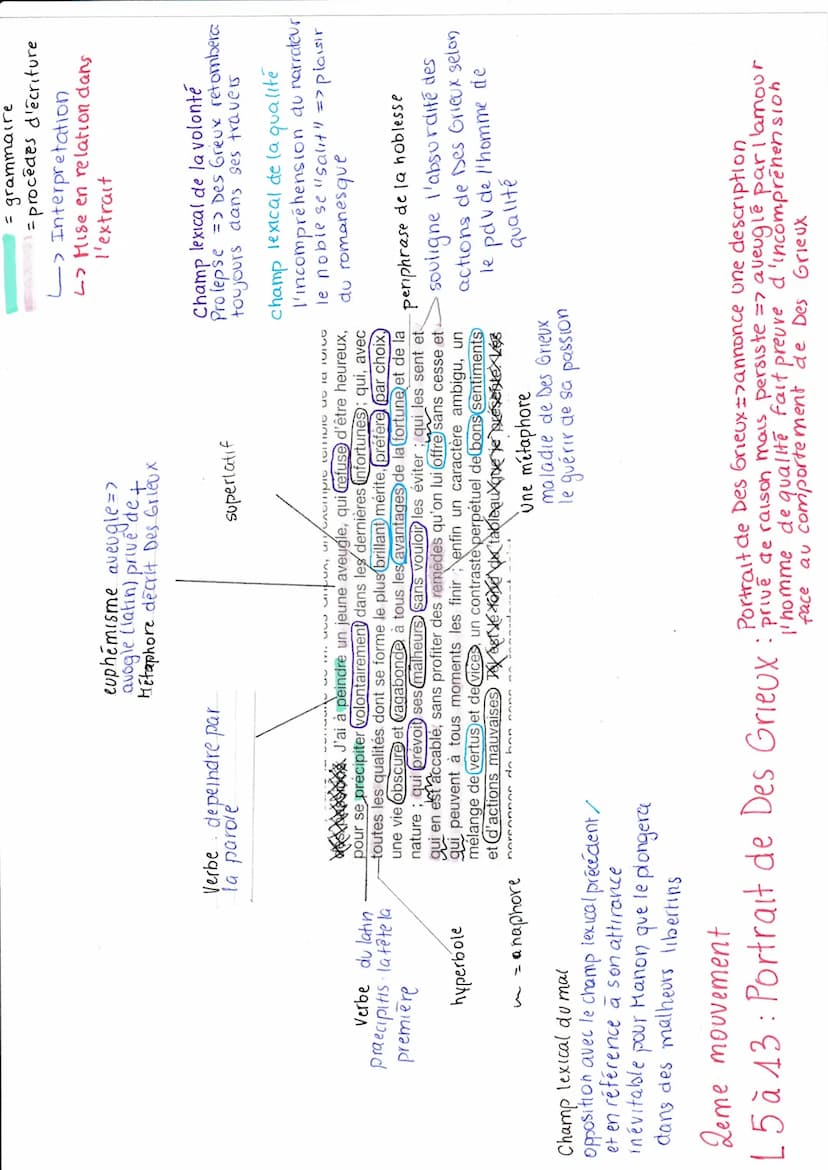 = grammaire
= procédés d'écriture
↳ Interpretation
↳ Mise en relation dans
l'extrait
euphémisme aveugle =>
avogle (latin) privé de +
Métaphore décrit Des Grieux
superlatif
Verbe : depeindre par
la parole
Champ lexical de la volonté
Prolepse => Des Greux retombera
toujours dans ses travers
champ lexical de la qualité
l'incompréhension du narrateur
le noble se "salit" => plaisir
du romanesque
periphrase de la noblesse
souligne l'absurdité des
actions de Des Grieux selon
le pdv de l'homme de
qualité
J'ai à peindre un jeune aveugle, qui refuse d'être heureux,
pour se précipiter volontairement dans les dernières infortunes ; qui, avec
toutes les qualités dont se forme le plus brillant mérite, préfère par choix,
une vie obscure et vagabonde, à tous les avantages de la fortune et de la
nature ; qui prévoit ses malheurs, sans vouloir les éviter ; qui les sent et
qui en est accablé, sans profiter des remèdes qu'on lui offre sans cesse et
qui peuvent à tous moments les finir ; enfin un caractère ambigu, un
mélange de vertus et de vices, un contraste perpétuel de bons sentiments
et d'actions mauvaises.
Verbe du latin
praecipitis : la tête la
première
hyperbole
~ = anaphore
Une métaphore
maladie de Des Grieux
le guérir de sa passion
Champ lexical du mal
opposition avec le champ lexical précédent /
et en référence à son attirance
inévitable pour Manon que le plongera
dans des malheurs libertins
2eme mouvement
L 5 à 13 : Portrait de Des Grieux :
Portrait de Des Grieux => annonce une description
privé de raison mais persiste => aveuglé par l'amour
l'homme de qualité fait preuve d'incompréhension
face au comportement de Des Grieux